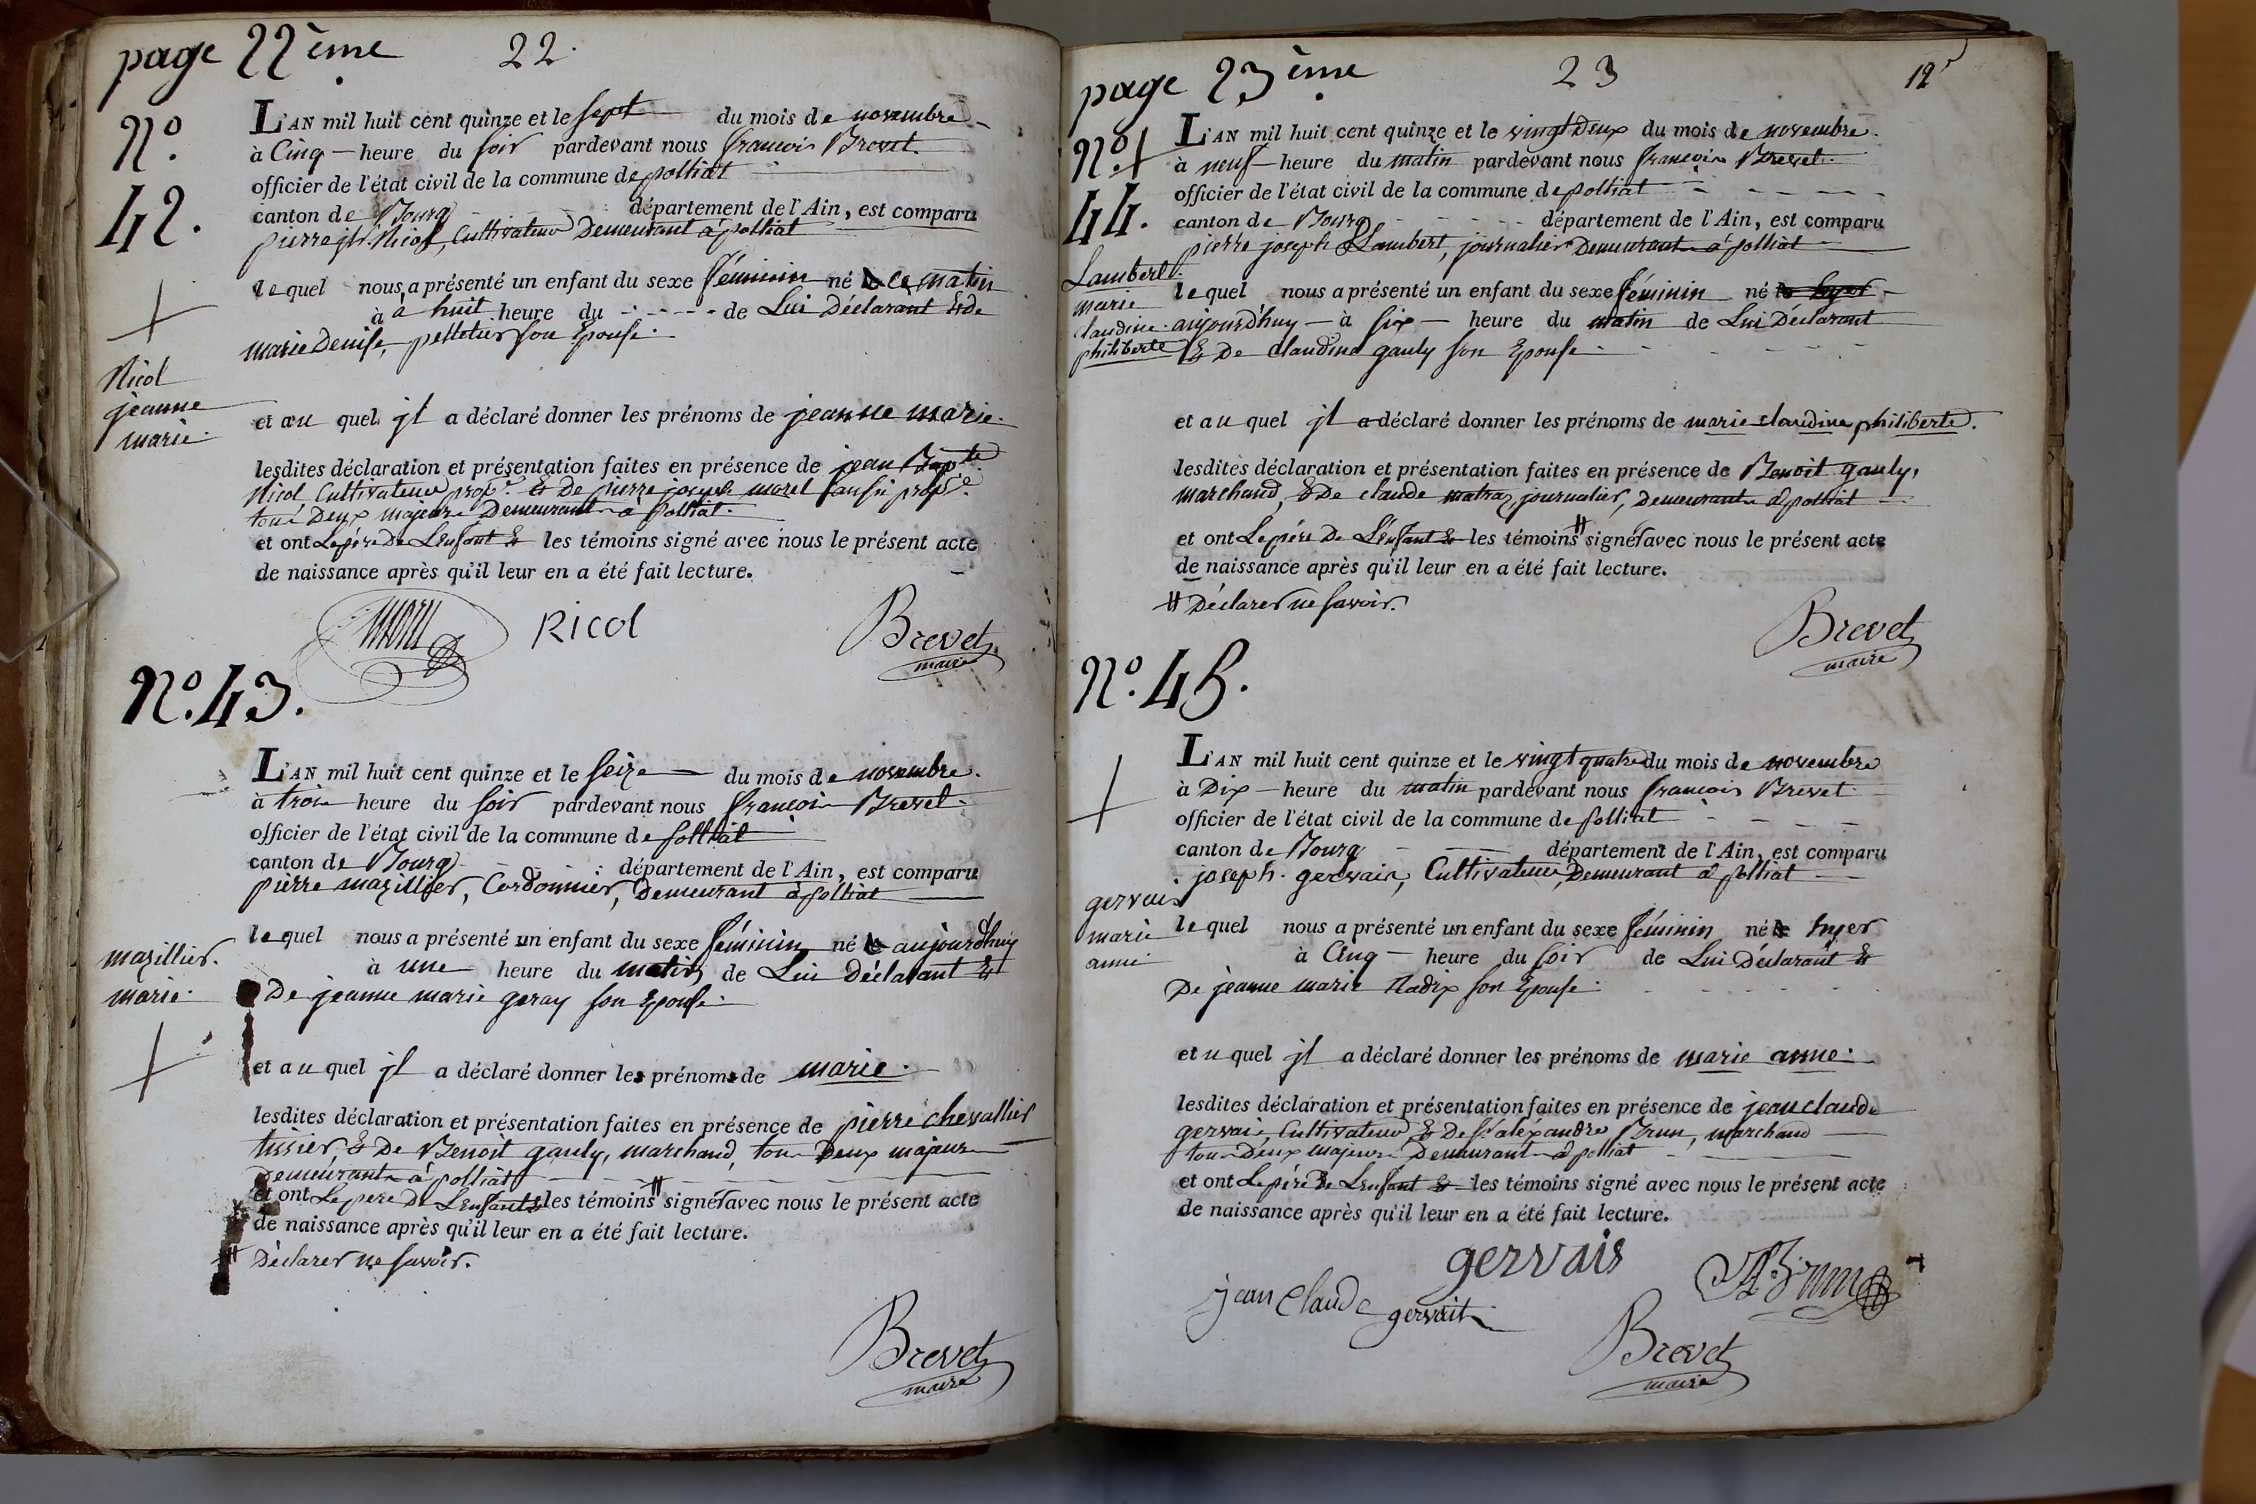 page 22ème 22.
N.º
42.
L'AN mil huit cent quinze et le sept du mois de novembre
à Cinq heure du soir pardevant nous françois Brevet.
officier de l'état civil de la commune de polliat
canton de Bourg département de l'Ain, est comparu
pierre Nicol, Cultivateur Demeurant à polliat
lequel nous a présenté un enfant du sexe féminin né ce matin
à à huit heure du de Lui Déclarant & de
marie Denise pelletier son Epouse.
Nicol
jeanne
marie.
et au quel jl a déclaré donner les prénoms de jeanne marie.
lesdites déclaration et présentation faites en présence de jean Bapte
Nicol Cultivateur propre. & De pierre joseph morel aussi propre.
tous Deux majeurs Demeurant à polliat.
et ont Le père De L'enfant & les témoins signé avec nous le présent acte
de naissance après qu'il leur en a été fait lecture.
Ricol Brevet
maire
N.º 43.
L'AN mil huit cent quinze et le seize du mois de novembre.
à trois heure du soir pardevant nous françois Brevet
officier de l'état civil de la commune de polliat
canton de Bourg département de l'Ain, est comparu
pierre mazillier, Cordonnier, Demeurant à polliat
lequel nous a présenté un enfant du sexe féminin né aujourdhuy
à une heure du matin de Lui Déclarant &
De jeanne marie geray son Epouse.
mazillier.
marie.
et au quel jl a déclaré donner les prénoms de marie.
lesdites déclaration et présentation faites en présence de pierre chevallier
tissier, & De Benoit gauly, marchand, tous Deux majeurs
Demeurant à polliat
et ont Le père De L'enfant & les témoins # signé avec nous le présent acte
de naissance après qu'il leur en a été fait lecture.
# Déclarer ne savoir.
Brevet
maire
page 23ème 23 12
N.º
44.
L'AN mil huit cent quinze et le vingt Deux du mois de novembre.
à neuf heure du matin pardevant nous françois Brevet.
officier de l'état civil de la commune de polliat
canton de Bourg département de l'Ain, est comparu
pierre joseph Lambert, journalier Demeurant à polliat
Lambert.
marie
claudine.
philiberte
lequel nous a présenté un enfant du sexe féminin né le hyer
aujourd'huy à six heure du matin de Lui Déclarant
& De claudine gauly son Epouse.
et au quel jl a déclaré donner les prénoms de marie claudine philiberte.
lesdites déclaration et présentation faites en présence de Benoit gauly,
marchand, & De claude matraz, journalier, Demeurant à polliat
et ont Le père De L'Enfant & les témoins # signé avec nous le présent acte
de naissance après qu'il leur en a été fait lecture.
# Déclarer ne savoir.
Brevet
maire
N.º 45.
L'AN mil huit cent quinze et le vingt quatre du mois de novembre
à Dix heure du matin pardevant nous françois Brevet.
officier de l'état civil de la commune de polliat
canton de Bourg département de l'Ain, est comparu
joseph gervais, Cultivateur, Demeurant à polliat
gervais
marie
anne
lequel nous a présenté un enfant du sexe féminin né hyer
à Cinq heure du soir de Lui Déclarant &
De jeanne marie Nadix son Epouse.
et u quel jl a déclaré donner les prénoms de marie anne.
lesdites déclaration et présentation faites en présence de jean claude
gervais, Cultivateur & De Sr. aléxandre Brun, marchand
tous Deux majeurs Demeurant à polliat
et ont Le père De L'enfant & les témoins signé avec nous le présent acte
de naissance après qu'il leur en a été fait lecture.
gervais
jean Claude gervait
Brevet
maire